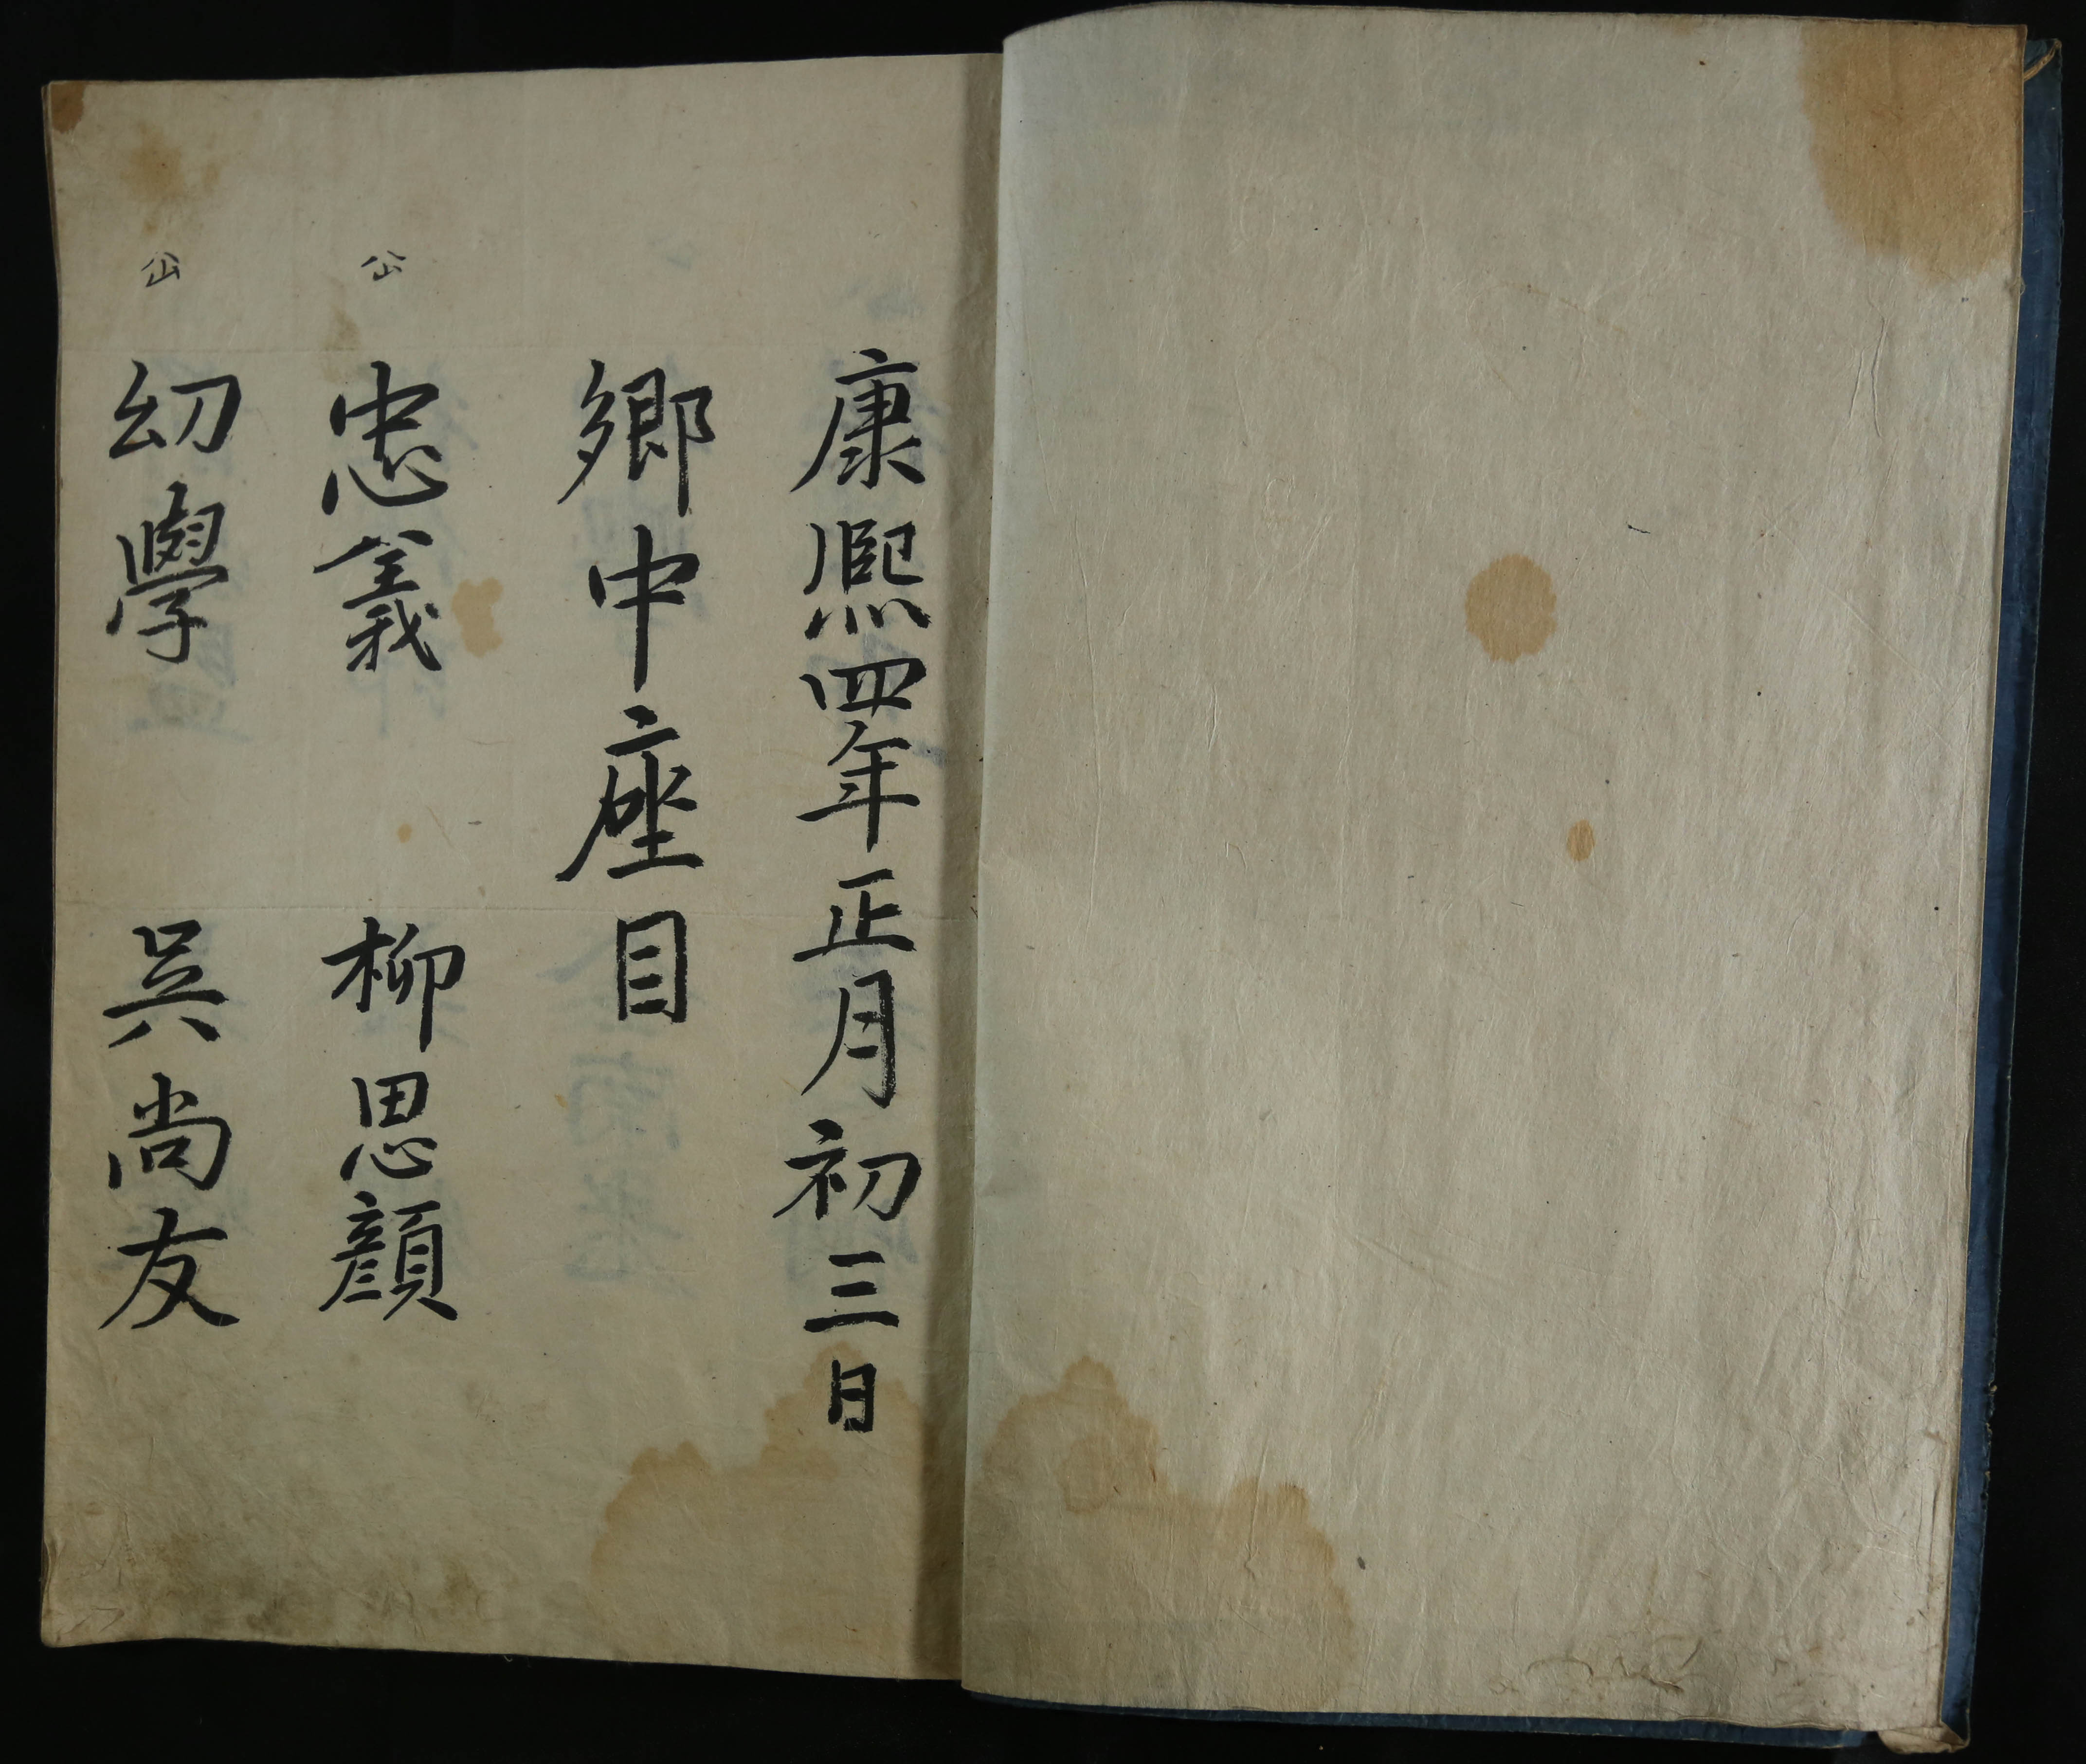 康熙四年正月初三日
鄉中座目
忠義 柳思顔
幼學 吳尚友